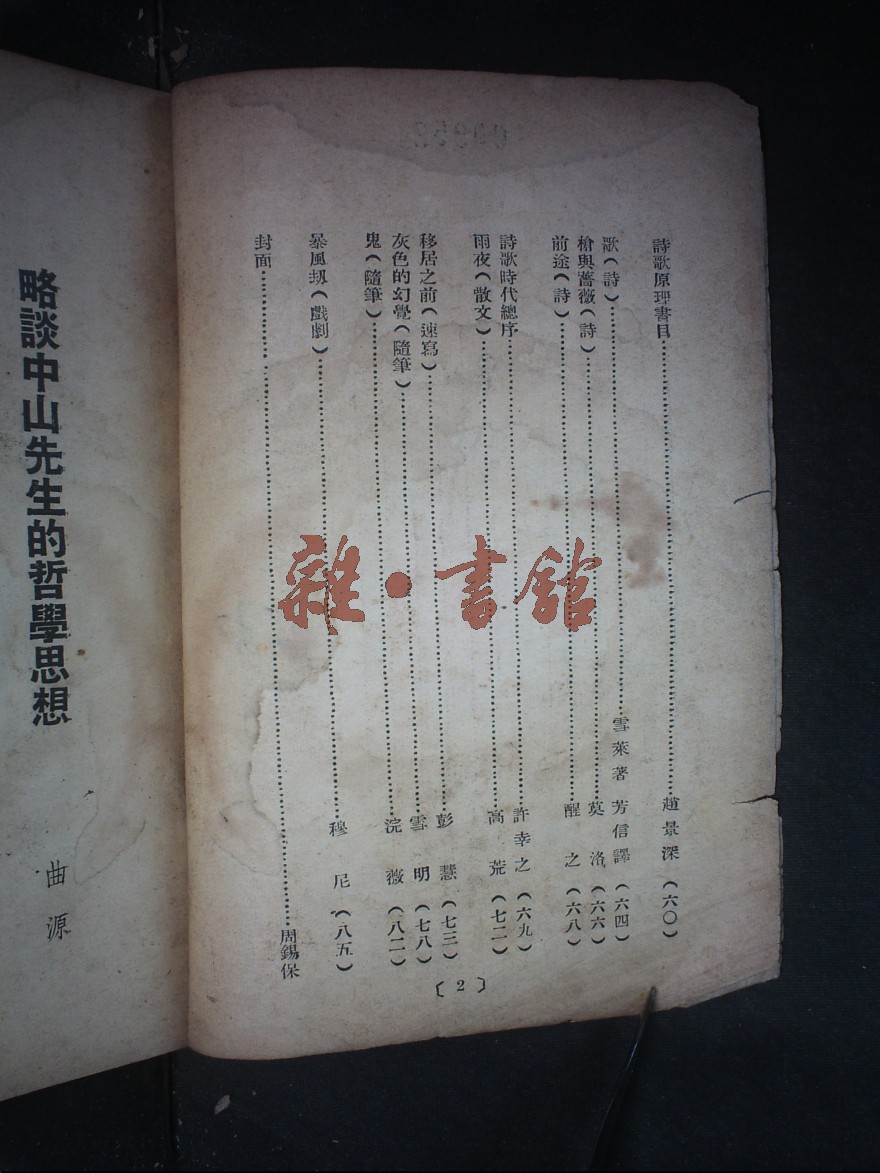 詩歌原理書目……趙景深(六〇)
歌(詩)……雪萊著 芳信譯(六四)
槍與薔薇(詩)……莫洛(六六)
前途(詩)……醒之(六八)
詩歌時代總序……許幸之(六九)
雨夜(散文)……高荒(七二)
移居之前(速寫)……彭慧(七三)
灰色的幻覺(隨筆)……雪明(七八)
鬼(隨筆)……浣薇(八二)
暴風刼(戲劇)……穆尼(八五)
封面……周錫保
〔2〕
略談中山先生的哲學思想
曲源
雜·書館